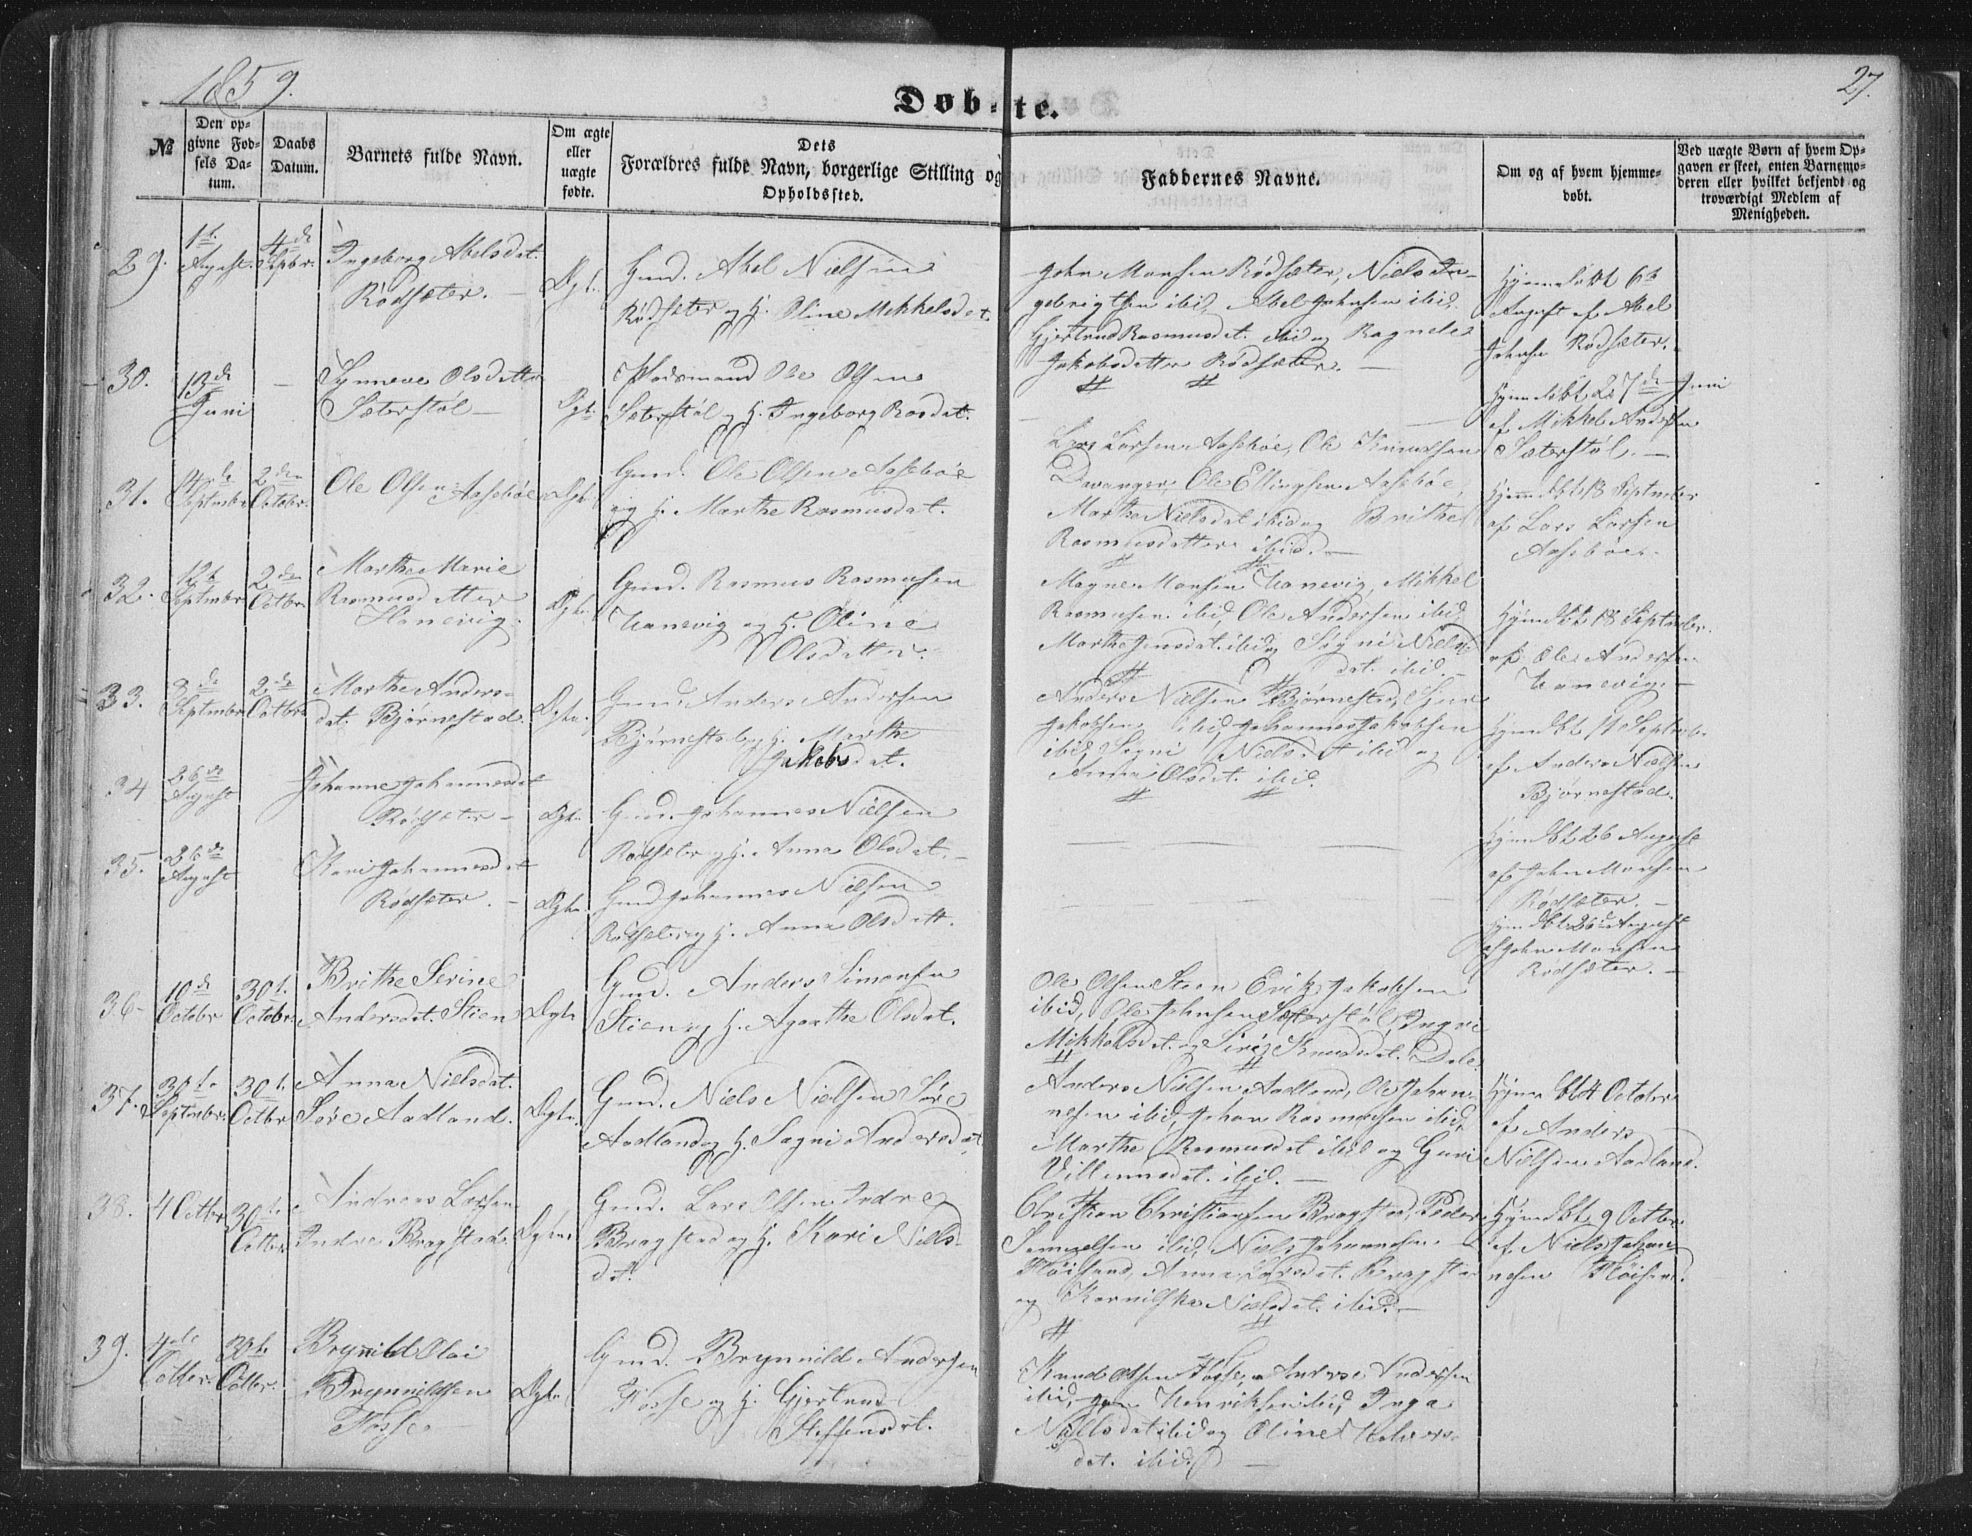 1859.
27.
Døbte.
№
Den opgivne Fødsels Datum.
Daabs Datum.
Barnets fulde Navn.
Om ægte eller uægte fødte.
Dets Forældres fulde Navn, borgerlige Stilling og Opholdssted.
Faddernes Navne.
Om og af hvem hjemmedøbt.
Ved uægte Børn af hvem Opgaven er skeet, enten Barnemoderen eller hvilket bekjendt og troværdigt Medlem af Menigheden.
29. 1t. August. 4de Septbr.
Ingeborg Abelsdat.
Rödsæter.
Gmd. Abel Nielsen
Rödsæter og H. Oline Mikkelsdat.
John Monsen Rödsæter, Niels In-
gebrigtsen ibid, Abel Johnsen ibid,
Gjertrud Rasmusdt. ibid og Ragnele
Jakobsdatter Rödsæter.
Hjemmedöbt 6t
August af Abel
Johnsen Rödsæter.
30. 13de Juni
Synneve Olsdatter
Sæterstöl
Pladsmand Ole Olsen
Sæterstöl og H. Ingeborg Rasdat.
27de Juni
af Mikkel Andersen
Sæterstöl.
31. 4de Septembr 2den October.
Ole Olsen Aaseböe
Gmd. Ole Olsen Aaseböe
og H. Marthe Rasmusdat.
Lars Larsen Aaseböe, Ole Knudsen
Davanger, Ole Ellingsen Aaseböe,
Marthe Nielsdat ibid og Brithe
Rasmusdatter ibid.
18 September
af Lars Larsen
Aaseböe.
32. 12t Septembr 2den Octbr.
Marthe Marie
Rasmusdatter
Hanevig.
Gmd. Rasmus Rasmusen
Hanevig og H. Oline
Olsdatter.
Magne Monsen Hanevig, Mikkel
Rasmusen ibid, Ole Andersen ibid,
Marthe Jensdat. ibid og Søgni Niels-
dat. ibid.
18 September.
af Ole Andersen
Hanevig.
33. 8de Septembr 2den Octbr
Marthe Anders-
dat. Björnestad.
Gmd. Anders Andersen
Björnestad og H. Marthe
Jakobsdat.
Anders Nielsen Björnestad,
Jakobsen ibid, Johannes Jakobsen
ibid, Søgni Nielsdt ibid og
Anna Olsdat. ibid.
11 Septembr
af Anders Nielsen
Björnestad.
34 26de August
Johanne Johannesdat
Rödsæter
Gmd. Johannes Nielsen
Rödsæter og H. Anna Olsdat.
26 August
af John Monsen
Rödsæter.
35. 26de August
Kari Johannesdat
Rödsæter.
Gmd Johannes Nielsen
Rödsæter og H. Anna Olsdatt.
26de August
af John Monsen
Rödsæter.
36 10de October 30t. October.
Brithe Serine
Andersdat. Stien
Gmd. Anders Simonsen
Stien og H. Agathe Olsdat.
Ole Olsen Steen Erik Jakobsen
ibid, Ole Johnsen Sæterstöl, Inger
Mikkelsdat. og Siri Knudsdat. Dale
37. Septembr. 30t. Octbr
Anna Nielsdat.
Söre Aadland.
Gmd. Niels Nielsen Söre
Aadland og H. Søgni Andersdat
Anders Nielsen Aadland, Ole Johan-
nesen ibid, Johan Rasmusen ibid,
Marthe Rasmusdat ibid og Guri
Villumsdat. ibid.
4 October
af Anders
Nielsen Aadland.
38. 4 Octbr 30t. Octbr.
Andreas Larsen
Indre Bragstad.
Gmd. Lars Olsen Indre
Bragstad og H. Kari Niels-
dat.
Christian Christiansen Bragstad, Peder
Samuelsen ibid, Niels Johannesen
Flöisand, Anna Larsdat. Bragstad
og Karnilska Nielsdat. ibid.
9 Octbr.
af Niels Johan-
nesen Flöisand.
39. 4de Octbr. 30t. Octbr.
Brynild Olai
Brynnildsen
Fosse.
Gmd. Brynnild Andersen
Fosse og H. Gjertrud
Steffensdat.
Knud Olsen Fosse, Anders Andersen
ibid, Henriksen ibid, Inga
Nielsdat ibid og Oline Halvors-
dat. ibid.